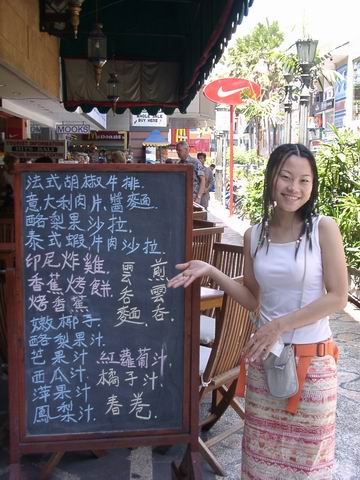 MOOKS
WHOLE SALE
BUY HERE
法式胡椒牛排
意大利肉片醬麵
酪梨果沙拉
泰式蝦片肉沙拉
印尼炸雞
香蕉烤餅
烤香蕉
雲吞麵
煎雲吞
嫩椰子
酪梨果汁
芒果汁
西瓜汁
萍果汁
鳳梨汁
紅蘿蔔汁
橘子汁
春卷